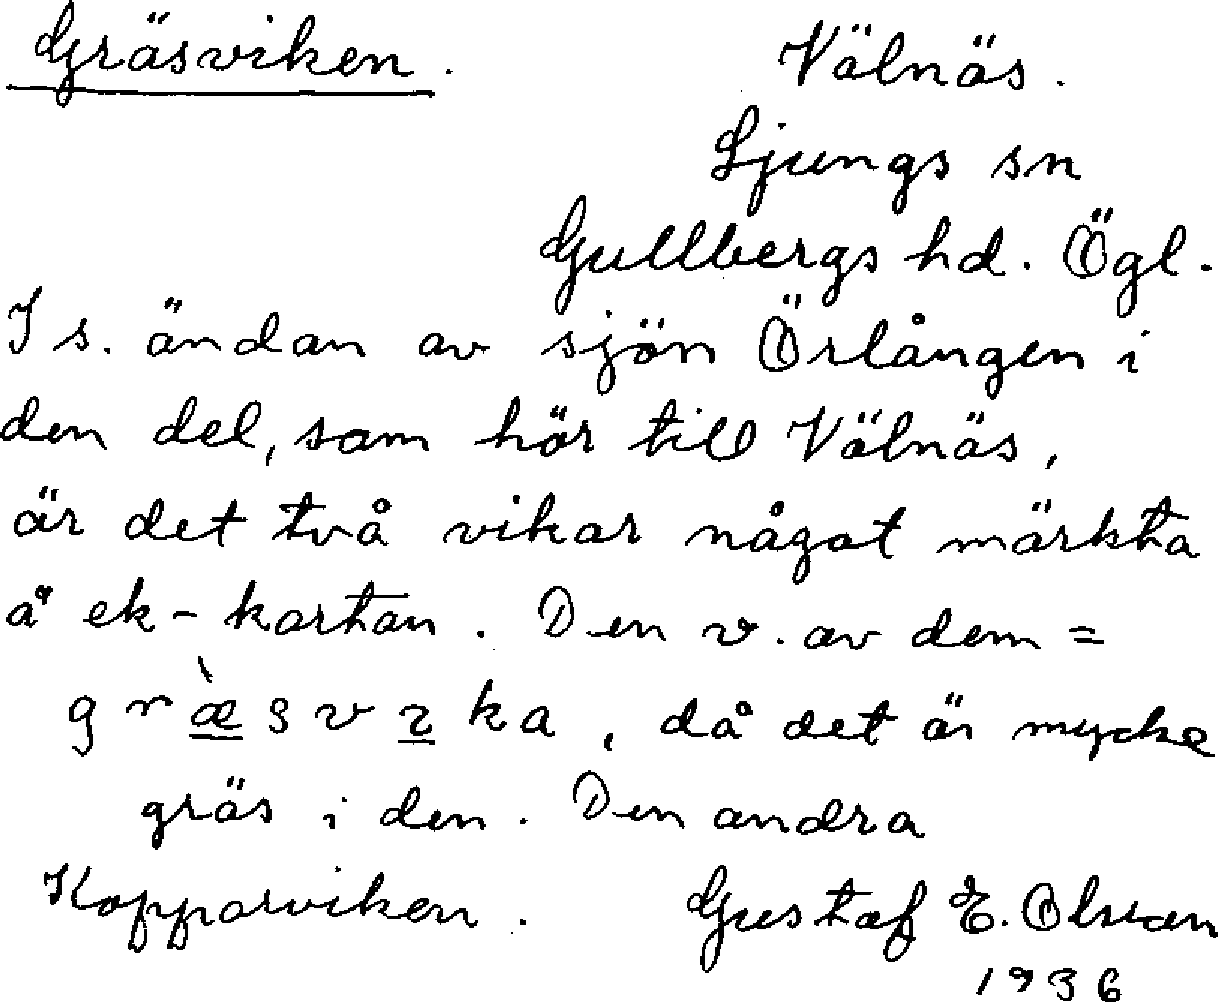 Gräsviken. Välnäs.
Ljungs sn
Gullbergs hd. Ögl.
I s. ändan av sjön Örlången i
den del, som hör till Välnäs,
är det två vikar något märkta
å ek-kartan. Den v. av dem =
græ̀svıka, då det är mycke
gräs i den. Den andra
Kopparviken. Gustaf E. Olsson
1936